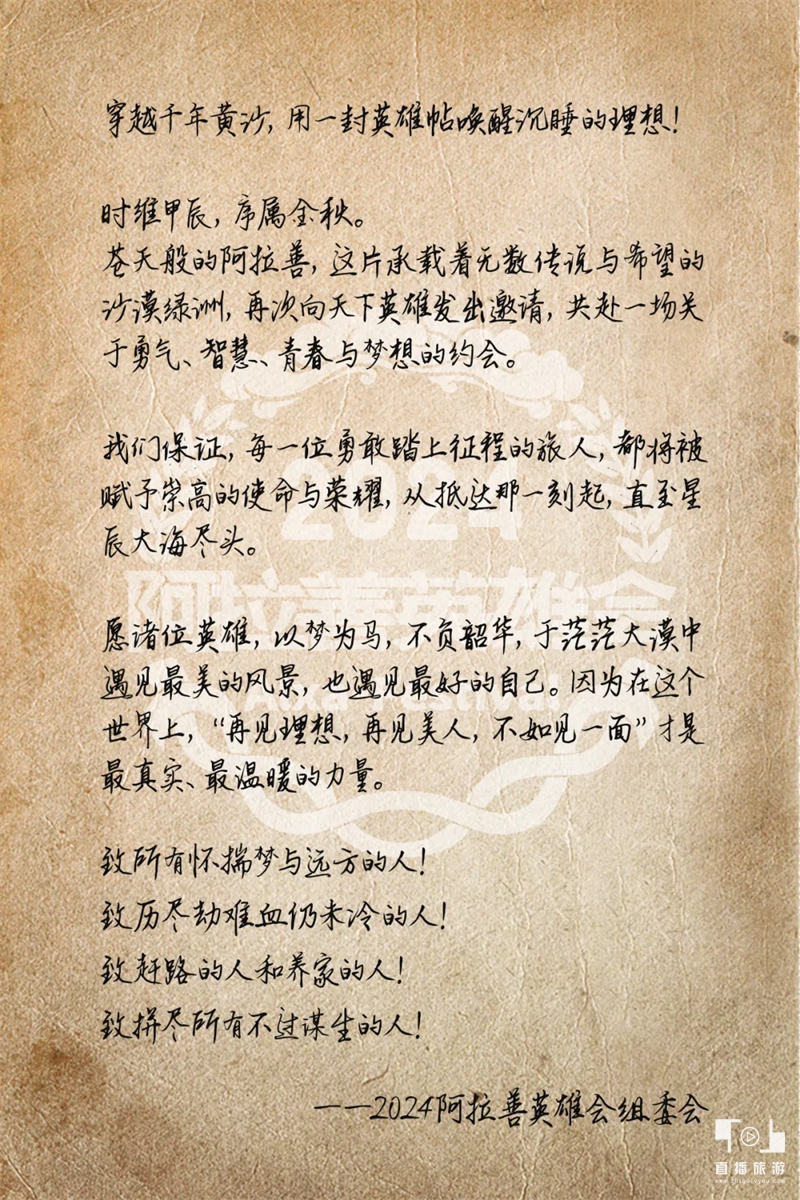 穿越千年黄沙，用一封英雄帖唤醒沉睡的理想！
时维甲辰，序属金秋。
苍天般的阿拉善，这片承载着无数传说与希望的
沙漠绿洲，再次向天下英雄发出邀请，共赴一场关
于勇气、智慧、青春与梦想的约会。
我们保证，每一位勇敢踏上征程的旅人，都将被
赋予崇高的使命与荣耀，从抵达那一刻起，直至星
辰大海尽头。
2024
阿拉善英雄会
愿诸位英雄，以梦为马，不负韶华，于茫茫大漠中
遇见最美的风景，也遇见最好的自己。因为在这个
世界上，“再见理想，再见美人，不如见一面”才是
最真实、最温暖的力量。
致所有怀揣梦与远方的人！
致历尽劫难血仍未冷的人！
致赶路的人和养家的人！
致拼尽所有不过谋生的人！
——2024阿拉善英雄会组委会
直播旅游